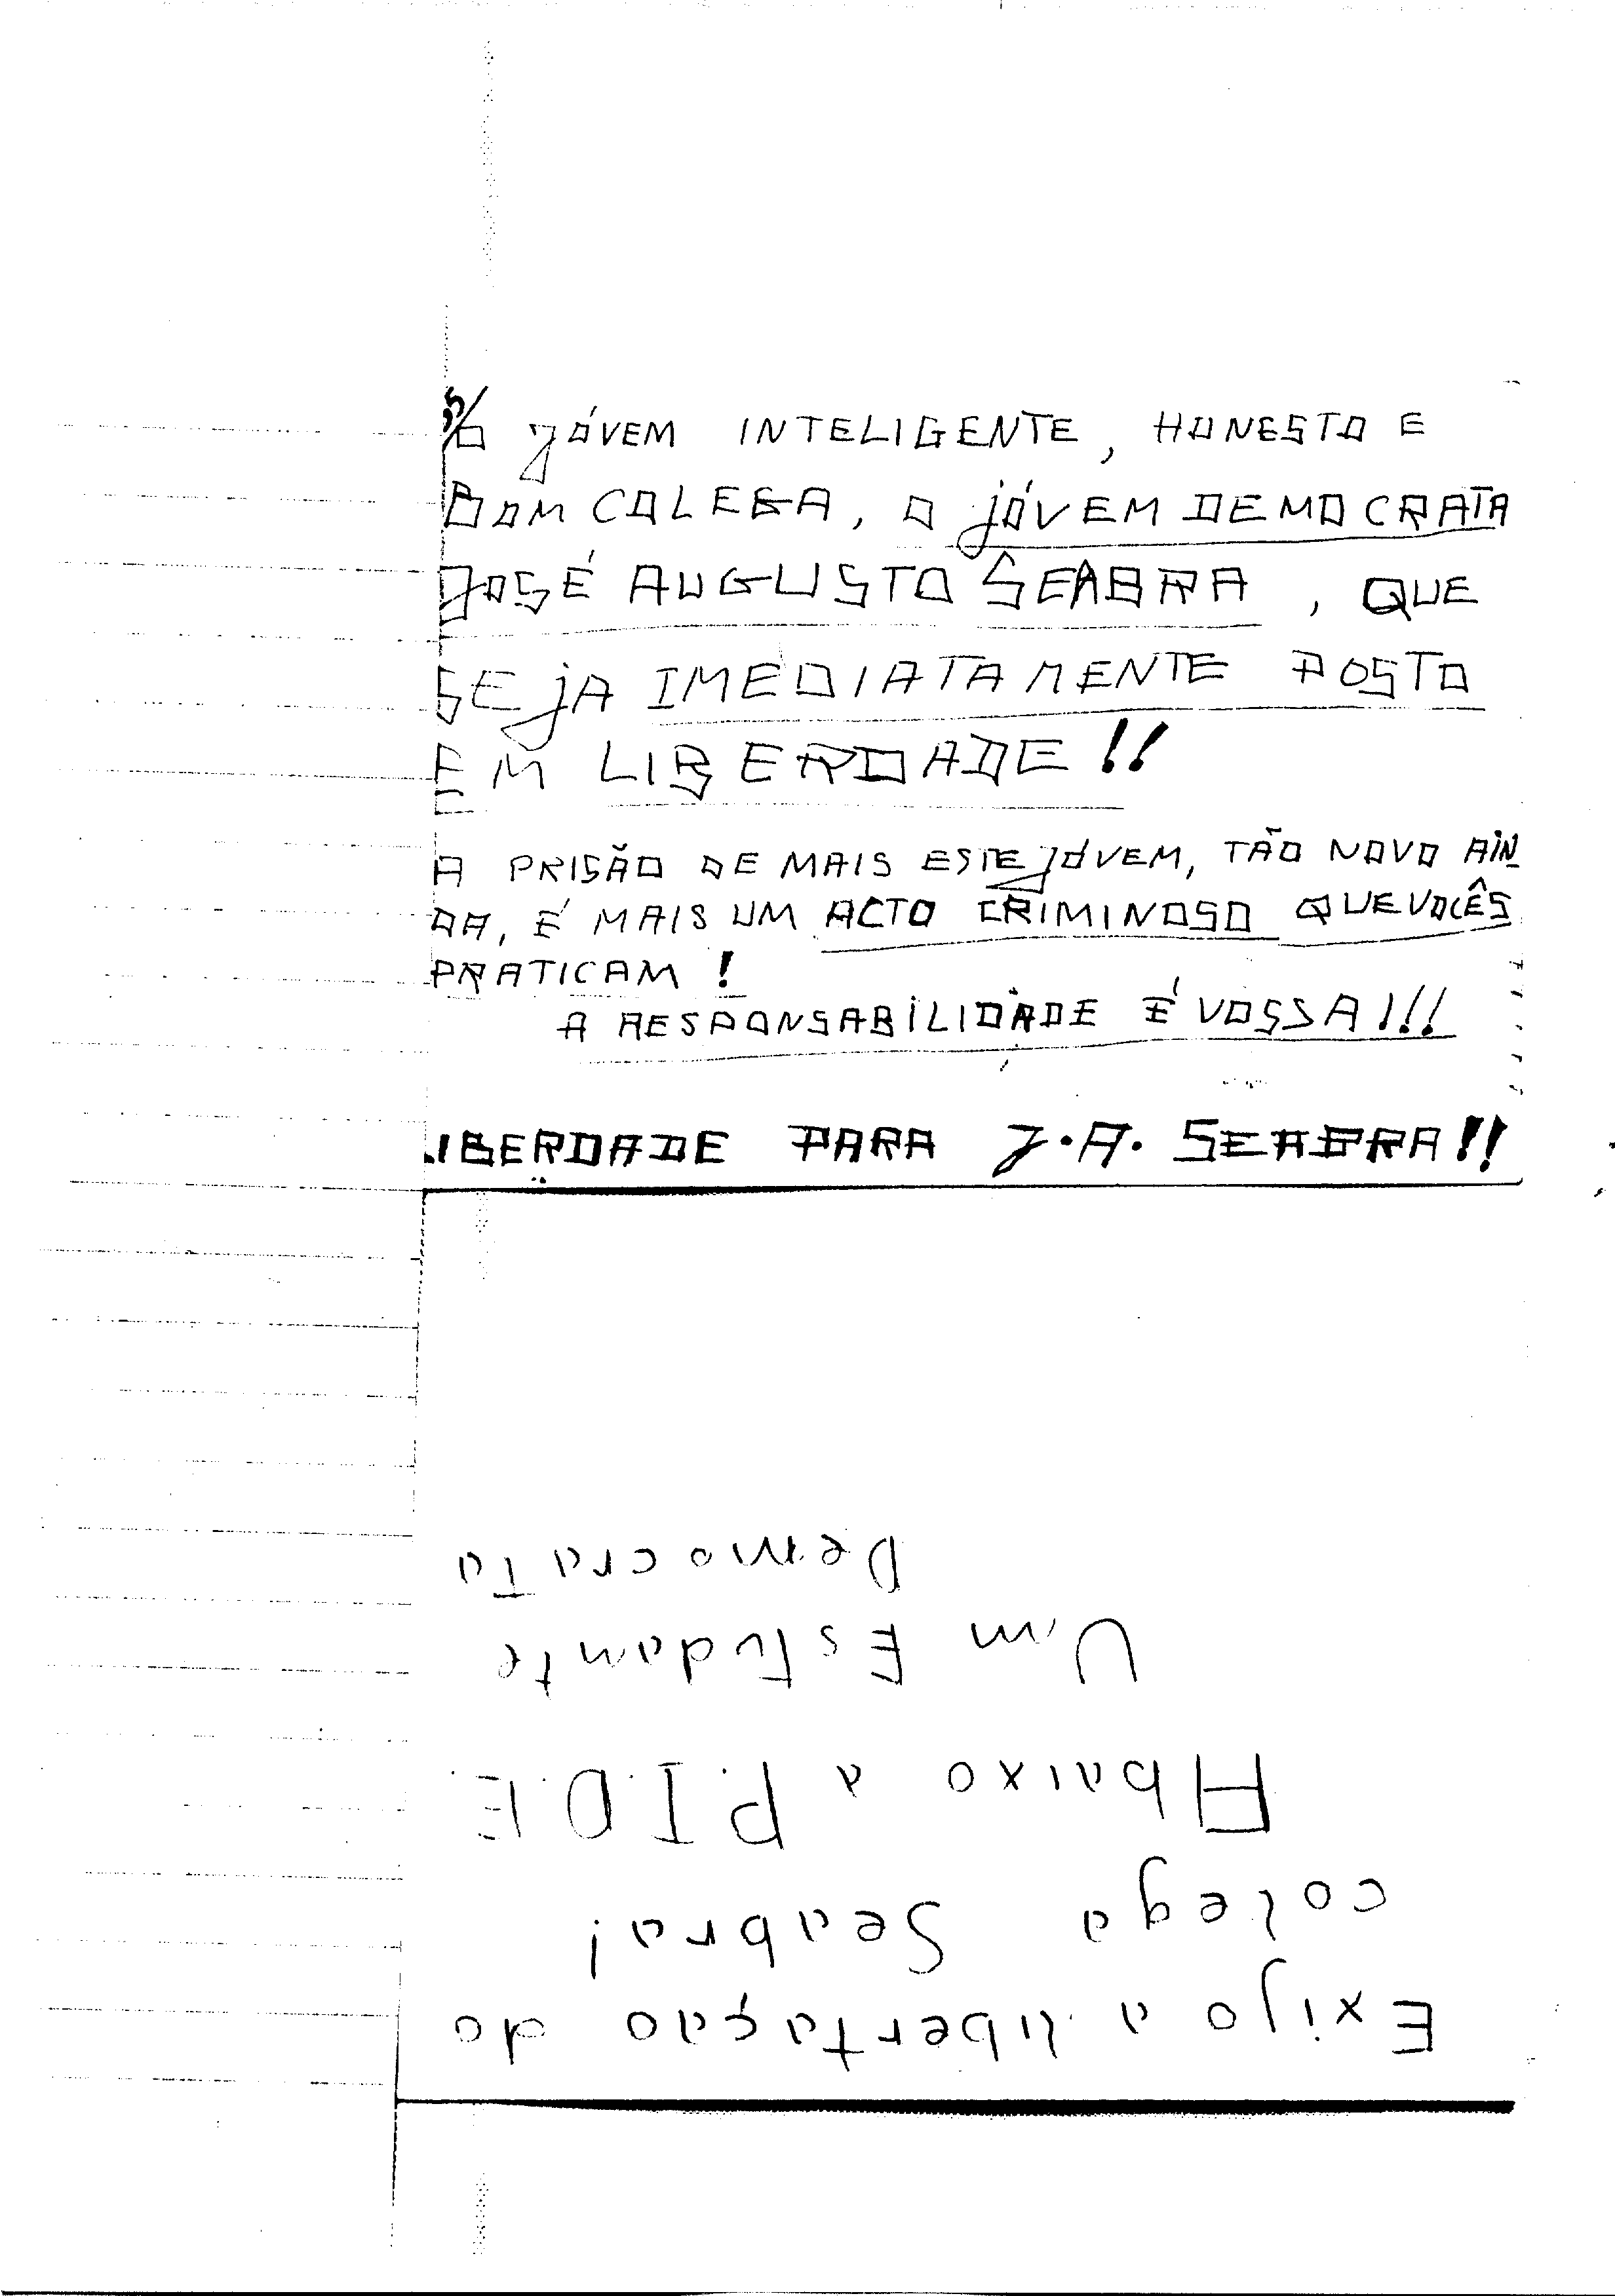 O JÓVEM INTELIGENTE, HONESTO E
BOM COLEGA, O JÓVEM DEMOCRATA
JOSÉ AUGUSTO SEABRA, QUE
SEJA IMEDIATAMENTE POSTO
EM LIBERDADE!!
A PRISÃO DE MAIS ESTE JÓVEM, TÃO NOVO AIN
DA, É MAIS UM ACTO CRIMINOSO QUE VOCÊS
PRATICAM!
A RESPONSABILIDADE É VOSSA!!!
IBERDADE PARA J.A. SEABRA!!
Exijo a libertação do
colega Seabra!
Abaixo a P.I.D.E.
Um Estudante
Democrata